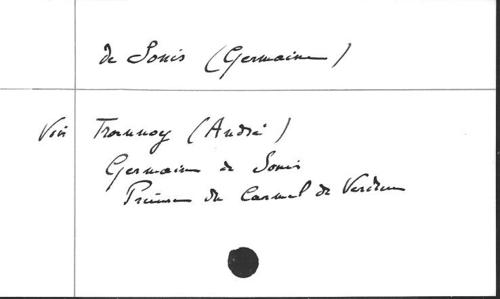 de Sonis (Germaine)
Voir Trannoy (André)
Germaine de Sonis
Prieure du Carmel de Verdun